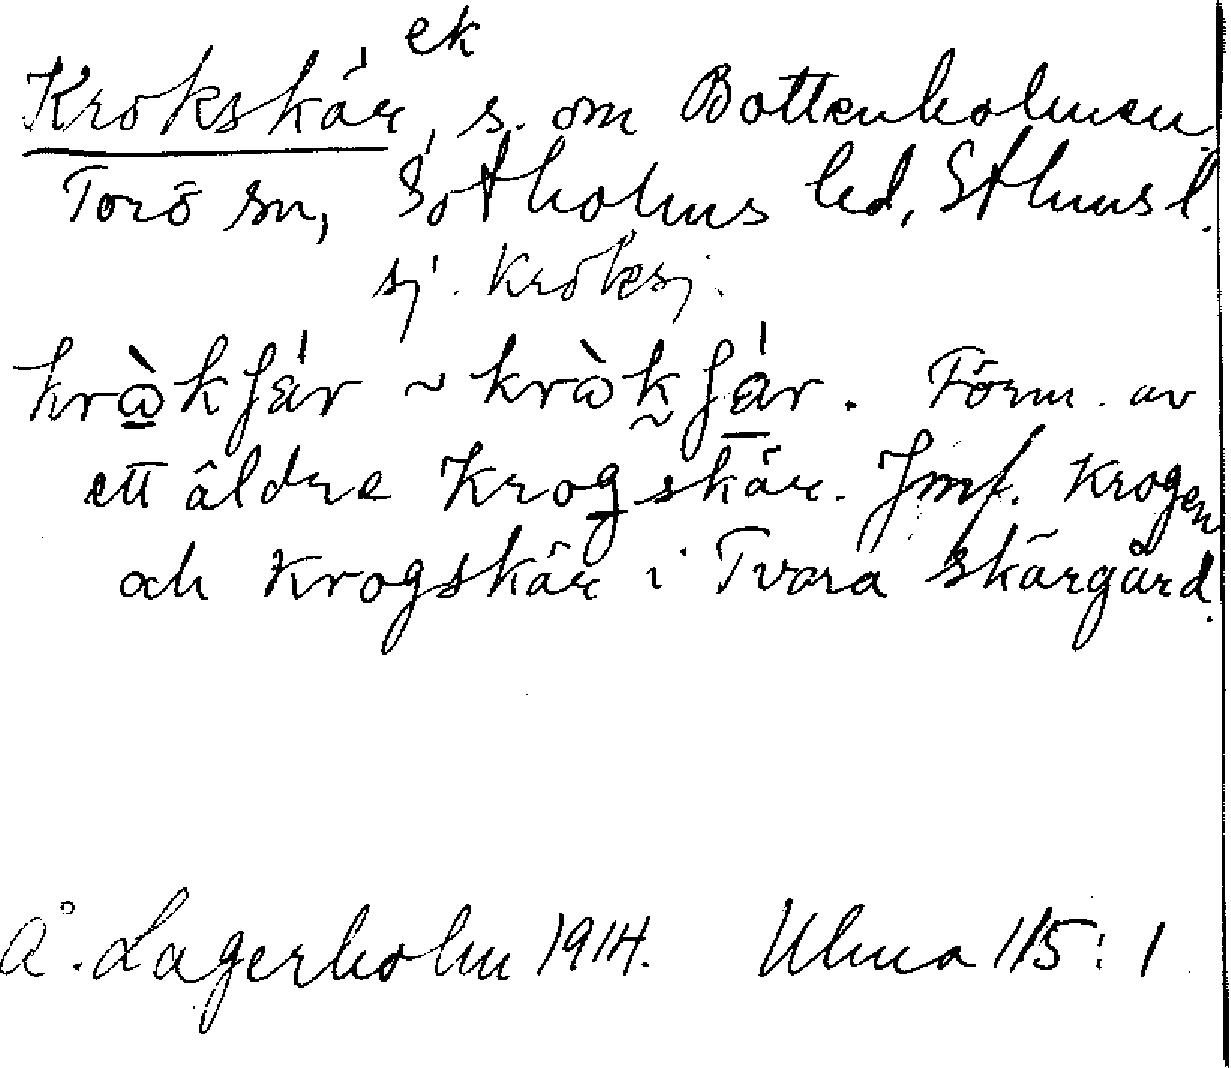 ek
Krokskär, s. om Bottenholmen,
Torö sn, Sotholms hd, Sthms l.
sj. Kroksj.
krὼkʃár ~ krὼkʃár. Förm. av
ett äldre Krogskär. Jmf. Krogen
och Krogskär i Tvära skärgård.
Å. Lagerholm 1914. Ulma 115:1